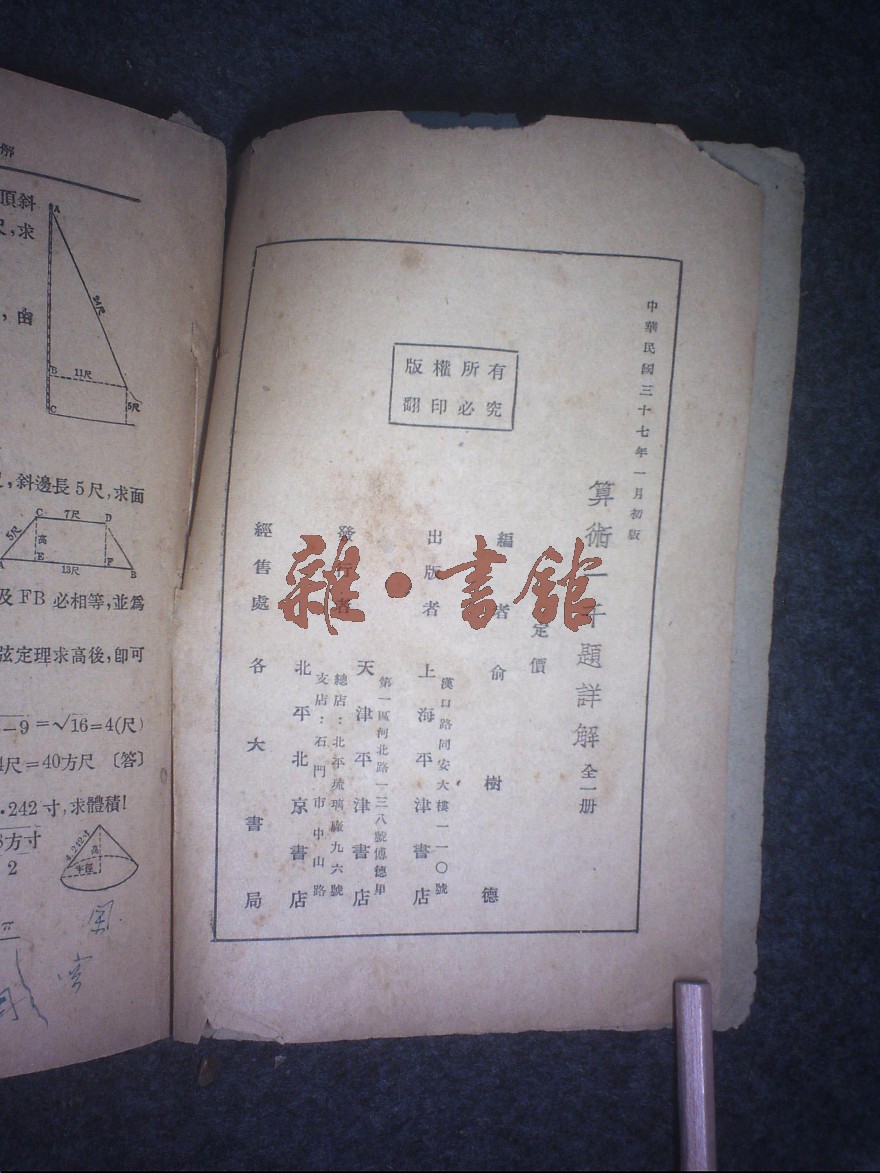 解
頂斜
尺,求
,由
A
24尺
B
11尺
C
5尺
,斜邊長5尺,求面
C 7尺 D
5尺
高
A E 13尺 F B
及FB必相等,並爲
弦定理求高後,即可
-9=√16=4(尺)
4尺=40方尺 〔答〕
.242寸,求體積!
方寸
2
4.242寸
高
半徑
中華民國三十七年一月初版
算術一千題詳解 全一册
定價
版權所有
翻印必究
編者 俞樹德
出版者 上海平津書店
漢口路同安大樓一一〇號
發行者 天津平津書店
第一區河北路一三八號傅德里
北平北京書店
總店:北平琉璃廠九六號
支店:石門市中山路
經售處 各大書局
雜·書館